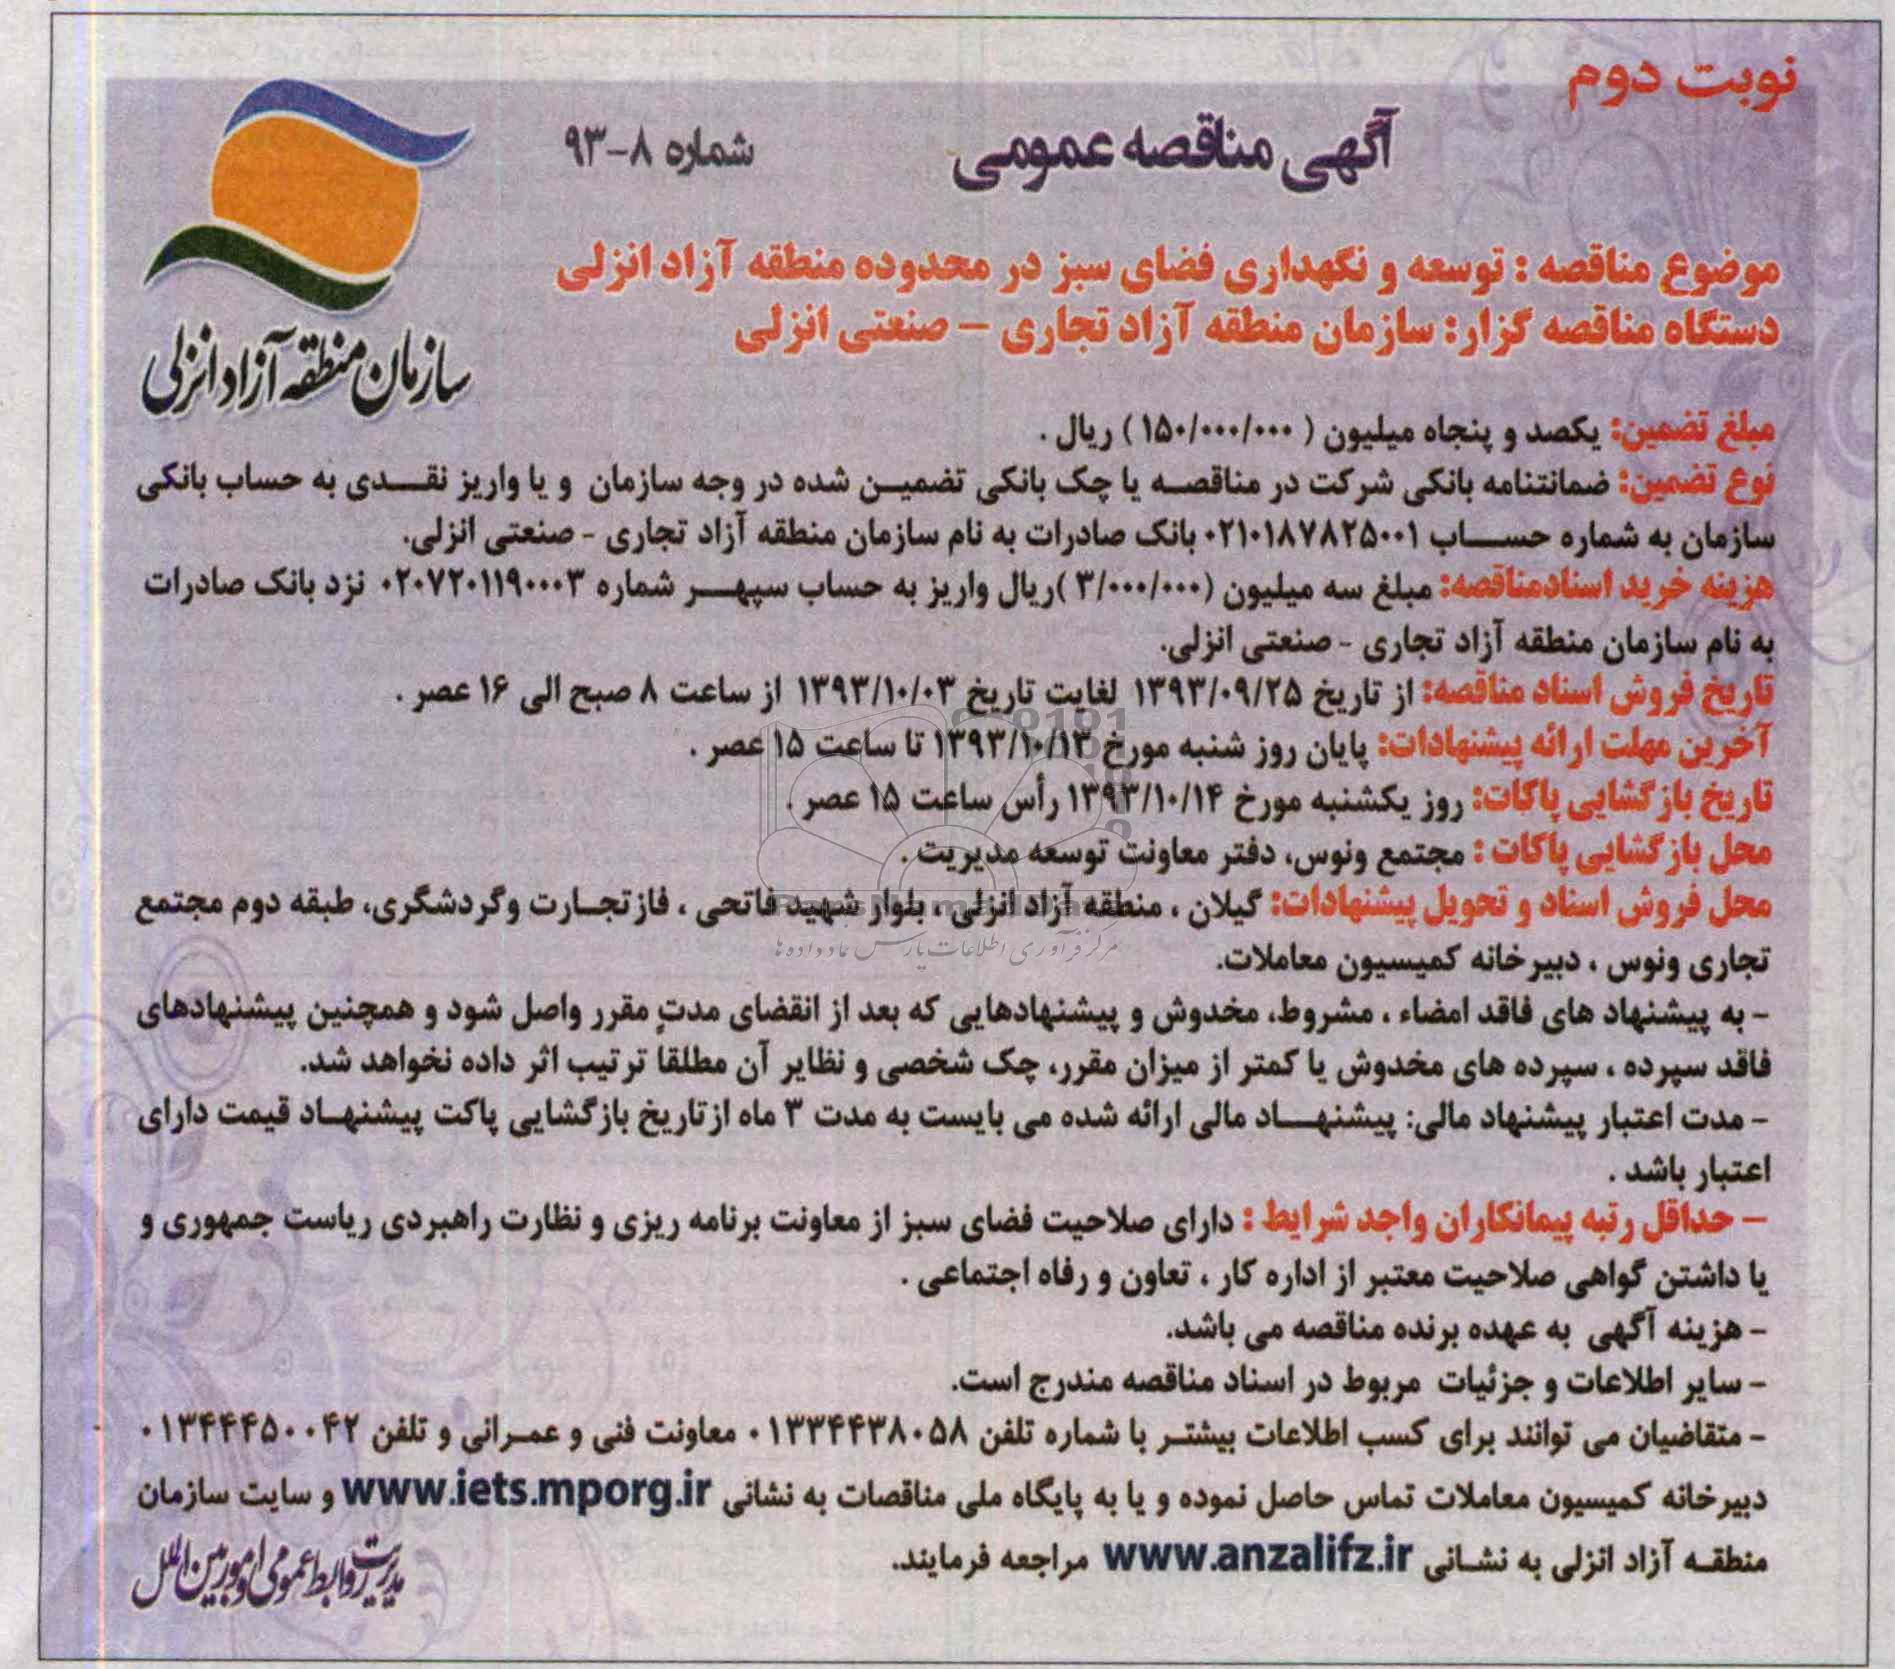 نوبت دوم
آگهی مناقصه عمومی
شماره ۸-۹۳
سازمان منطقه آزاد انزلی
موضوع مناقصه : توسعه و نگهداری فضای سبز در محدوده منطقه آزاد انزلی
دستگاه مناقصه گزار: سازمان منطقه آزاد تجاری – صنعتی انزلی
مبلغ تضمین: یکصد و پنجاه میلیون ( ۱۵۰/۰۰۰/۰۰۰ ) ریال .
نوع تضمین: ضمانتنامه بانکی شرکت در مناقصه یا چک بانکی تضمین شده در وجه سازمان و یا واریز نقدی به حساب بانکی
سازمان به شماره حساب ۰۲۱۰۱۸۷۸۲۵۰۰۱ بانک صادرات به نام سازمان منطقه آزاد تجاری - صنعتی انزلی.
هزینه خرید اسنادمناقصه: مبلغ سه میلیون (۳/۰۰۰/۰۰۰ )ریال واریز به حساب سپهر شماره ۰۲۰۷۲۰۱۱۹۰۰۰۳ نزد بانک صادرات
به نام سازمان منطقه آزاد تجاری - صنعتی انزلی.
تاریخ فروش اسناد مناقصه: از تاریخ ۱۳۹۳/۰۹/۲۵ لغایت تاریخ ۱۳۹۳/۱۰/۰۳ از ساعت ۸ صبح الی ۱۶ عصر .
آخرین مهلت ارائه پیشنهادات: پایان روز شنبه مورخ ۱۳۹۳/۱۰/۱۳ تا ساعت ۱۵ عصر .
تاریخ بازگشایی پاکات: روز یکشنبه مورخ ۱۳۹۳/۱۰/۱۴ رأس ساعت ۱۵ عصر .
محل بازگشایی پاکات : مجتمع ونوس، دفتر معاونت توسعه مدیریت .
محل فروش اسناد و تحویل پیشنهادات: گیلان ، منطقه آزاد انزلی ، بلوار شهید فاتحی ، فاز تجارت وگردشگری، طبقه دوم مجتمع
مرکز فرآوری اطلاعات پارس نماد داده ها
تجاری ونوس ، دبیرخانه کمیسیون معاملات.
- به پیشنهاد های فاقد امضاء ، مشروط، مخدوش و پیشنهادهایی که بعد از انقضای مدتٍ مقرر واصل شود و همچنین پیشنهادهای
فاقد سپرده ، سپرده های مخدوش یا کمتر از میزان مقرر، چک شخصی و نظایر آن مطلقا ترتیب اثر داده نخواهد شد.
- مدت اعتبار پیشنهاد مالی: پیشنهاد مالی ارائه شده می بایست به مدت ۳ ماه ازتاریخ بازگشایی پاکت پیشنهاد قیمت دارای
اعتبار باشد .
– حداقل رتبه پیمانکاران واجد شرایط : دارای صلاحیت فضای سبز از معاونت برنامه ریزی و نظارت راهبردی ریاست جمهوری و
یا داشتن گواهی صلاحیت معتبر از اداره کار ، تعاون و رفاه اجتماعی .
- هزینه آگهی به عهده برنده مناقصه می باشد.
- سایر اطلاعات و جزئیات مربوط در اسناد مناقصه مندرج است.
- متقاضیان می توانند برای کسب اطلاعات بیشتر با شماره تلفن ۰۱۳۳۴۴۳۸۰۵۸ معاونت فنی و عمرانی و تلفن ۰۱۳۴۴۴۵۰۰۴۲
دبیرخانه کمیسیون معاملات تماس حاصل نموده و یا به پایگاه ملی مناقصات به نشانی www.iets.mporg.ir و سایت سازمان
منطقه آزاد انزلی به نشانی www.anzalifz.ir مراجعه فرمایند.
مدیریت روابط عمومی و امور بین الملل